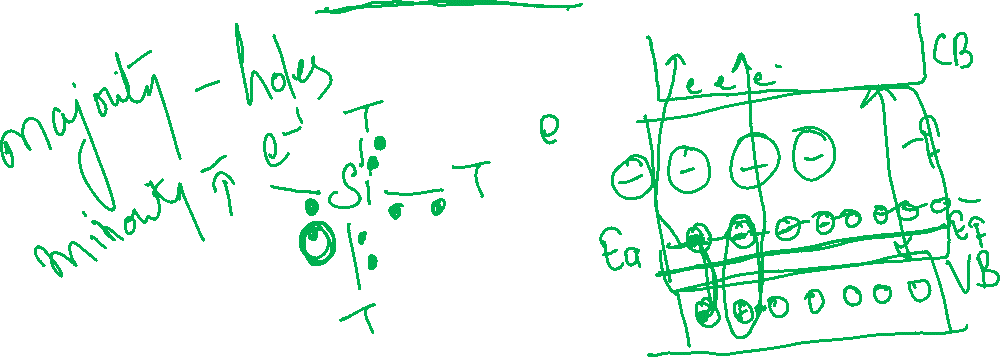 majority - holes
minority - e⁻
T
Si
T
T
e
CB
e e e⁻
Ea
Ef
VB